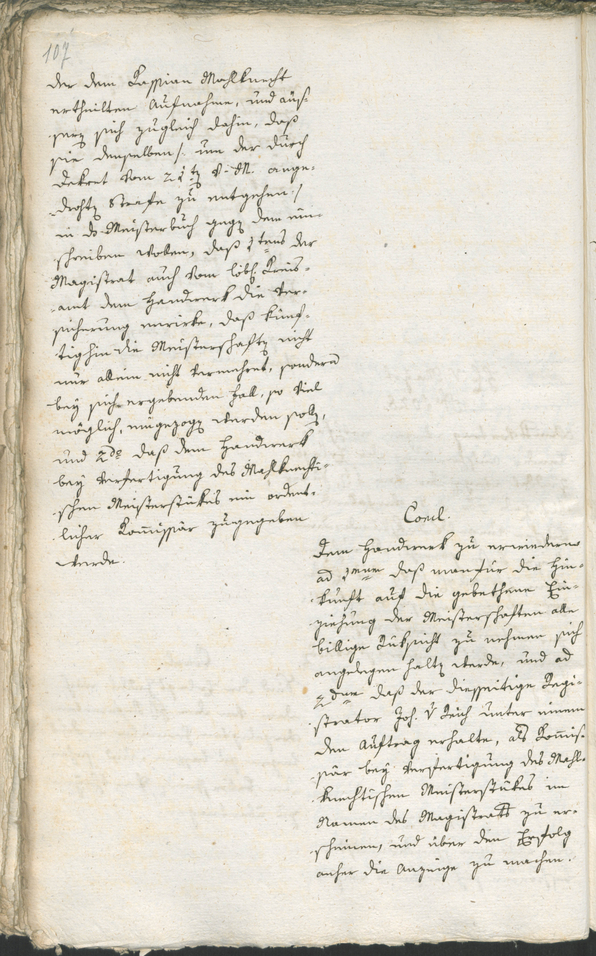 107
der dem Kassian Mahlknecht
ertheilten Aufnahme, und äus-
serz sich zugleich dahin, daß
sie denselben /: um der durch
Dekret vom 21tz v. M. ange-
drohtz Strafe zu entgehen :/
in ds Meisterbuch gegz dem ein-
schreiben wolen, daß 1tens der
Magistrat auch vom löbl. Kreis-
amt dem Handwerk die Ver-
sicherung erwirke, daß künf-
tighin die Meisterschaftz nicht
nur allein nicht vermehret, sondern
bey sich ergebenden Fall, so viel
möglich, eingezogz werden solz,
und 2do daß dem Handwerk
bey Verfertigung des Mahlknechti-
schen Meisterstükes ein ordent-
licher Kommissär zugegeben
werde.
Concl.
Dem Handwerk zu erwiedern
ad 1mum daß man für die Hin-
kunft auf die gebethene Ein-
ziehung der Meisterschaften alle
billige Rüksicht zu nehmen sich
angelegen haltz werde, und ad
2dum daß der diesseitige Regi-
strator Joh. v Reich unter einem
den Auftrag erhalte, als Kommis-
sär bey Verfertigung des Mahl-
knechtischen Meisterstükes im
Namen des Magistrats zu er-
scheinen, und über den Erfolg
anher die Anzeige zu machen.